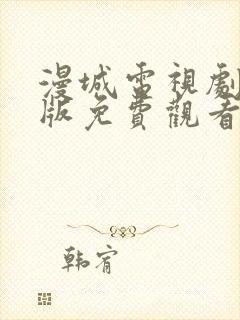 漫城電視劇
版免費觀看
韩宥